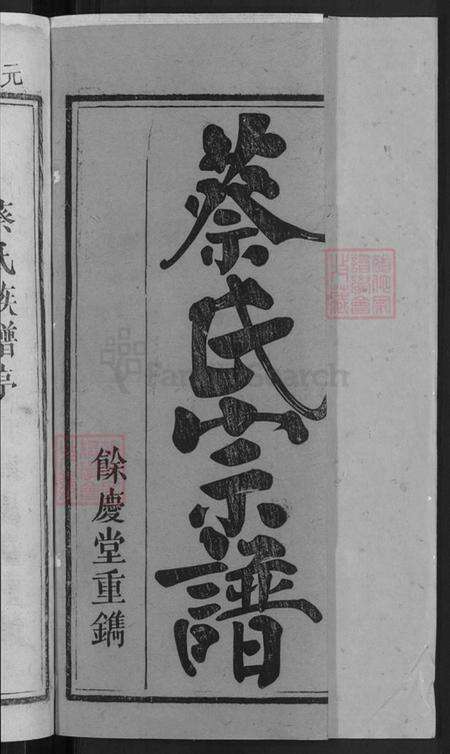 蔡氏宗譜
餘慶堂重鐫
元
蔡氏族譜序